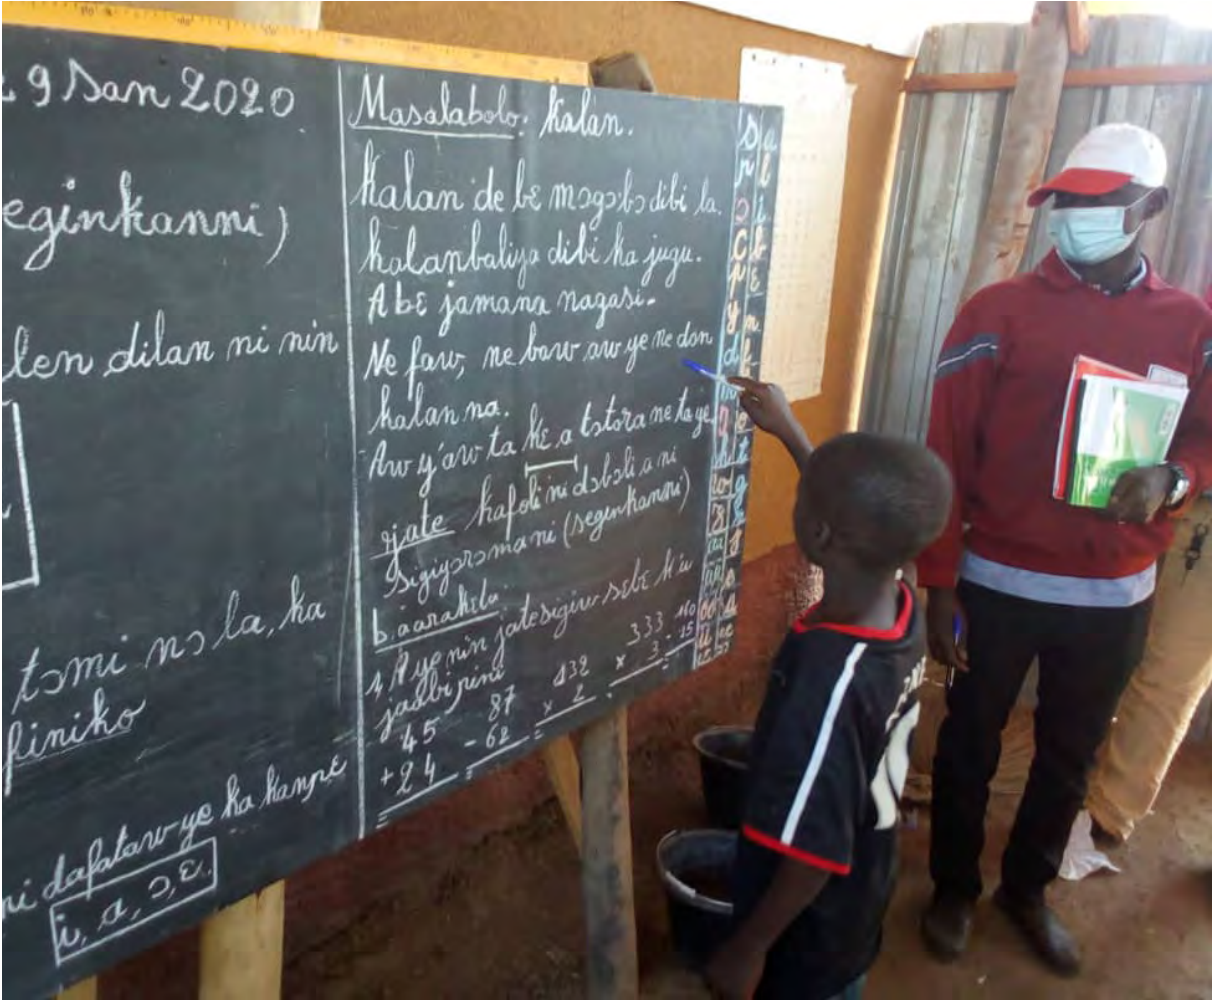 9 San 2020
eginkanni)
len dilan ni nin
tɔmi nɔ la, ka
finiko
ni dafataw ye ka kanpɛ
i, a, ɔ, ɛ.
Masalabolo: Kalan.
Kalan de bɛ mɔgɔ bɔ dibi la.
Kalanbaliya dibi ka jugu.
A bɛ jamana nagasi.
Ne faw, ne baw aw ye ne don
kalan na.
Aw y'aw ta kɛ a tɔ tɔra ne ta ye.
jate kafoli ni dɔbɔli a ni
sigiyɔrɔma ni (seginkanni)
b. aarakila
1, A ye nin jatesigiw sɛbɛ k'u
jaabi ɲini
45 87 432 333 160
+24 -62 × 2 × 3 - 15